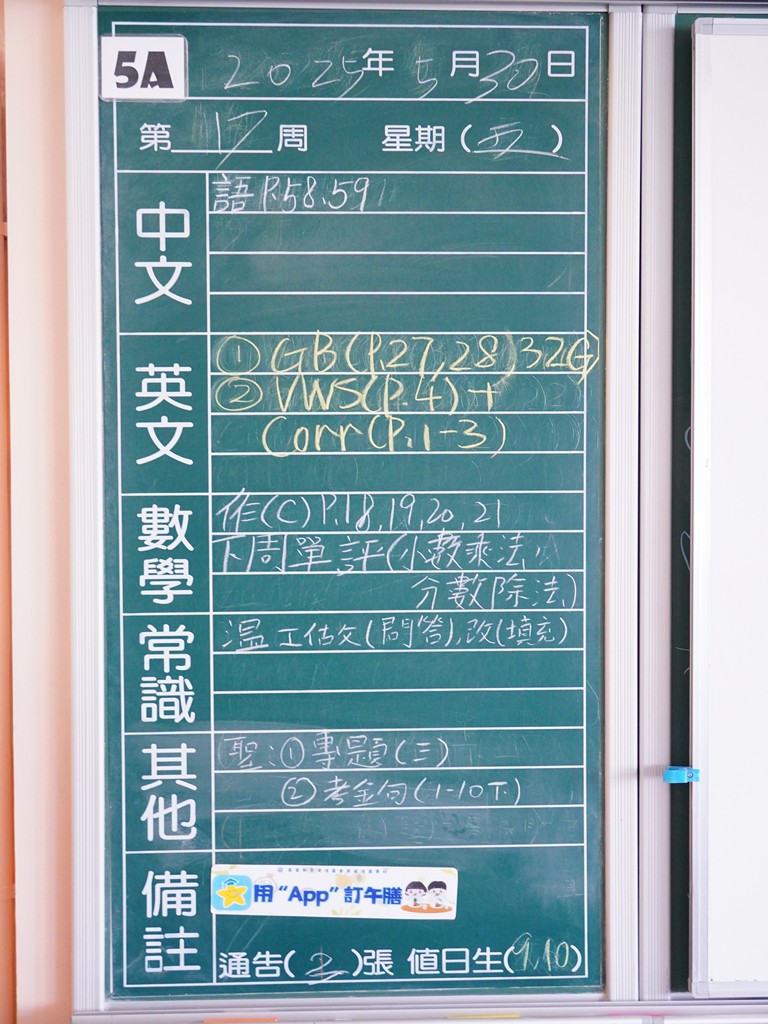 5A
2025年5月30日
第17周 星期(五)
中文
語 P.58、59
英文
① GB(P.27,28) 32G
② VWS(P.4)+
Corr(P.1-3)
數學
作(C)P.18,19,20,21
下周單評(小數乘法,
分數除法)
常識
溫工估文(問答),改(填充)
其他
聖:①專題(三)
②考金句(1-10下)
備註
用“App”訂午膳
通告(2)張 值日生(9,10)